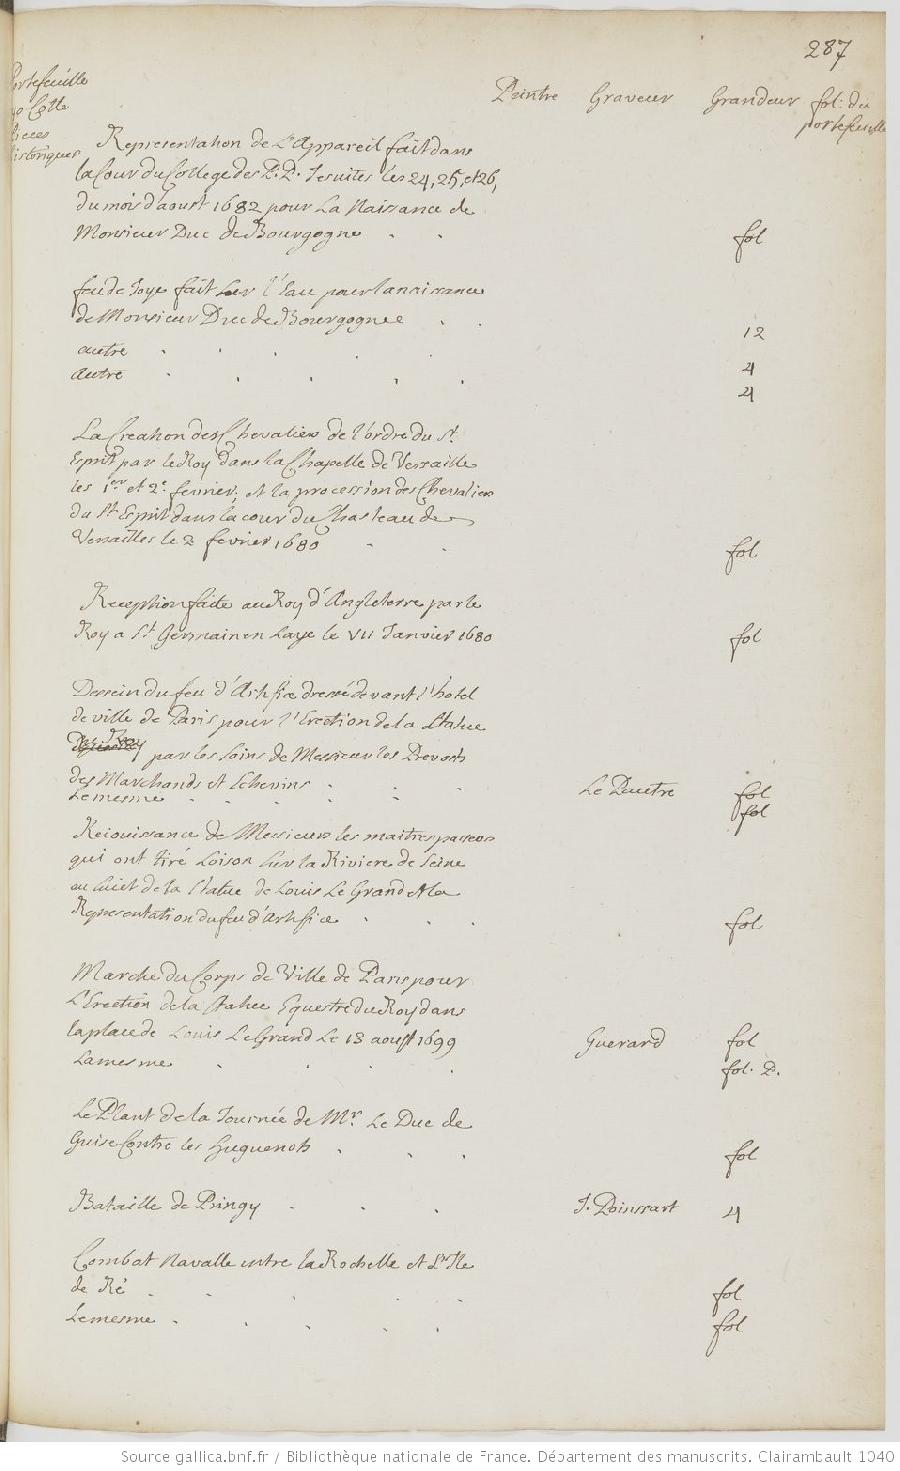 287
Portefeuille
no Cotté
Pieces
historiques
Peintre Graveur Grandeur fol: du
portefeuille
Representation de L'Appareil fait dans
la Cour du College des P.P. Jesuites les 24, 25, et 26,
du mois d'aoust 1682 pour La Naissance de
Monsieur Duc de Bourgogne . . fol
feu de Joye fait sur l'Eau pour la naissance
de Monsieur Duc de Bourgognee . . 12
autre . . . . . 4
Autre . . . . . 4
La Creation des Chevaliers de l'ordre du St.
Esprit par le Roy dans la Chapelle de Versaille
les 1er et 2e fevrier, et la procession des Chevaliers
du St Esprit dans la cour du Chasteau de
Versailles le 2 fevrier 1680 . . fol.
Reception faite au Roy d'Angleterre par le
Roy a St Germain en Laye le VII Janvier 1680 fol
Dessein du feu d'Artifice dressé devant l'hotel
de ville de Paris pour l'Erection de la Statue
du Roy par les soins de Messieurs les Prevosts
des Marchands et Echevins . . . Le Pautre fol
Le mesme . . . . fol
Rejouissance de Messieurs les maitres passeurs
qui ont tiré Loison sur la Riviere de Seine
au sujet de la Statue de Louis Le Grand et la
Representation du feu d'Artifice . . . fol.
Marche du Corps de Ville de Paris pour
L'Erection de la statue Equestre du Roy dans
la place de Louis Le Grand Le 13 aoust 1699 Guerard fol
La mesme . . . . fol. P.
Le Plant de la Journée de Mr. Le Duc de
Guise Contre les Huguenots . . . fol
Bataille de Pringy . . . J. Poinssart 4
Combat Navalle entre la Rochelle et L'Ile
de Ré . . . . fol
Le mesme . . . . . fol
Source gallica.bnf.fr / Bibliothèque nationale de France. Département des manuscrits. Clairambault 1040